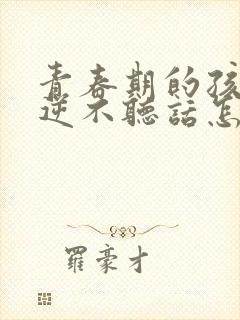 青春期的孩
逆不聽話怎
羅豪才